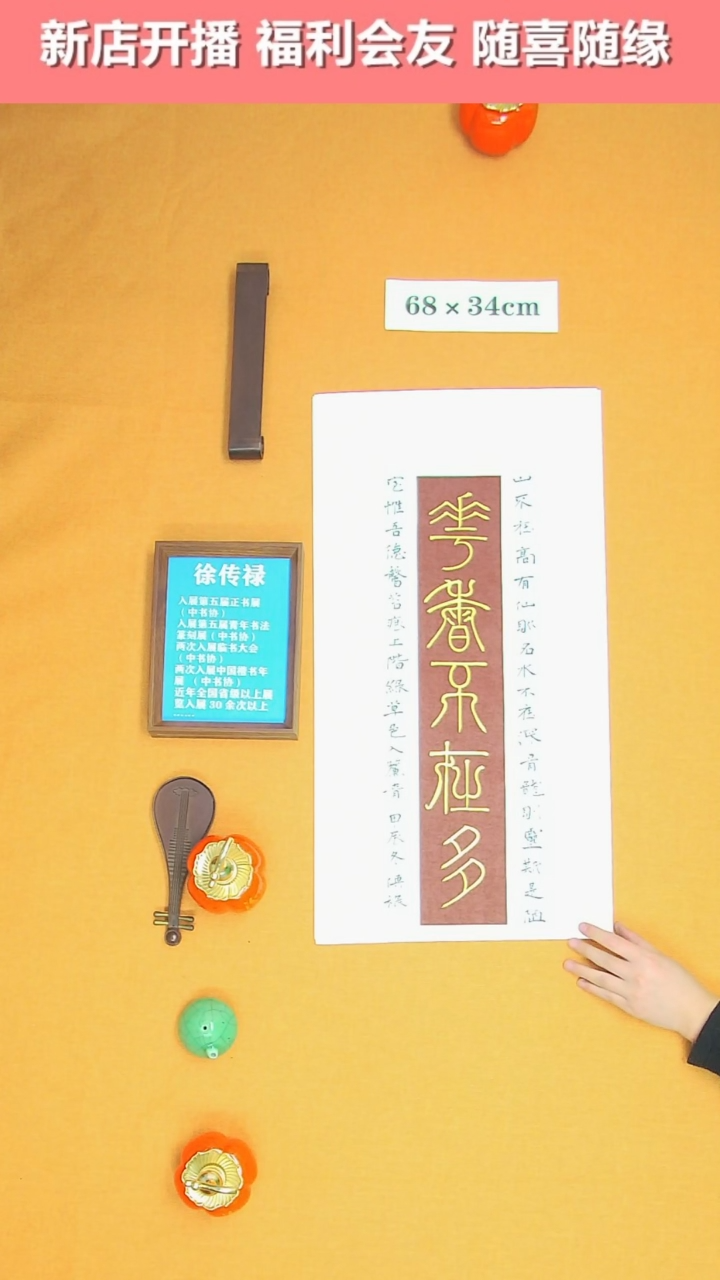 新店开播 福利会友 随喜随缘
68×34cm
徐传禄
入展第五届正书展
(中书协)
入展第五届青年书法
篆刻展(中书协)
两次入展临书大会
(中书协)
两次入展中国楷书年
展 (中书协)
近年全国省级以上展
览入展30余次以上
華香不在多
山不在高有仙則名水不在深有龍則靈斯是陋
室惟吾德馨苔痕上階綠草色入簾青